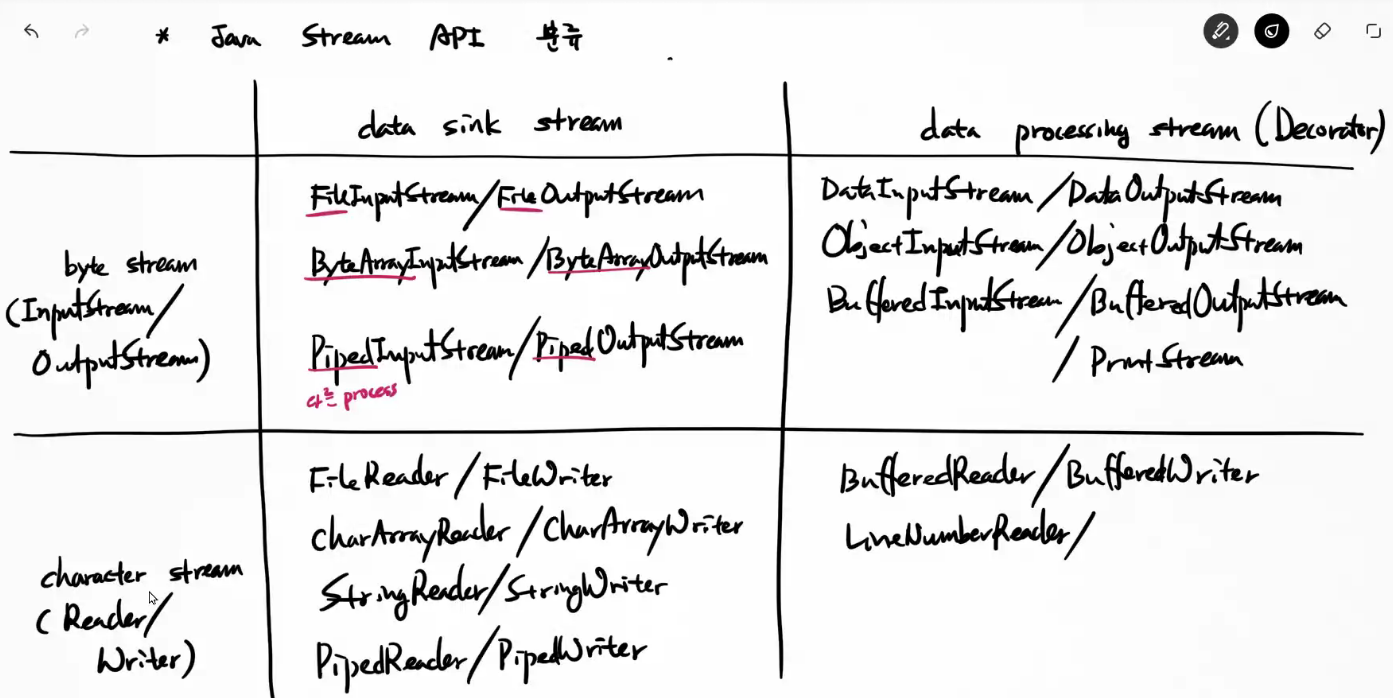 * Java Stream API 분류
data sink stream
data processing stream (Decorator)
byte stream
(InputStream/
OutputStream)
FileInputStream/FileOutputStream
ByteArrayInputStream/ByteArrayOutputStream
PipedInputStream/PipedOutputStream
다른 process
DataInputStream/DataOutputStream
ObjectInputStream/ObjectOutputStream
BufferedInputStream/BufferedOutputStream
/PrintStream
character stream
(Reader/
Writer)
FileReader/FileWriter
CharArrayReader/CharArrayWriter
StringReader/StringWriter
PipedReader/PipedWriter
BufferedReader/BufferedWriter
LineNumberReader/